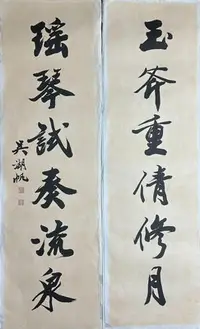 玉斧重倩修月
瑶琴試奏流泉
吴湖帆